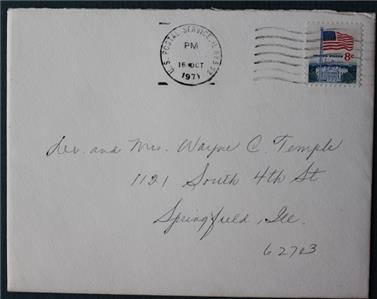 U.S. POSTAL SERVICE IL
PM
16 OCT
1971
8c
Dr. and Mrs. Wayne C. Temple
1121 South 4th St
Springfield, Ill.
62703